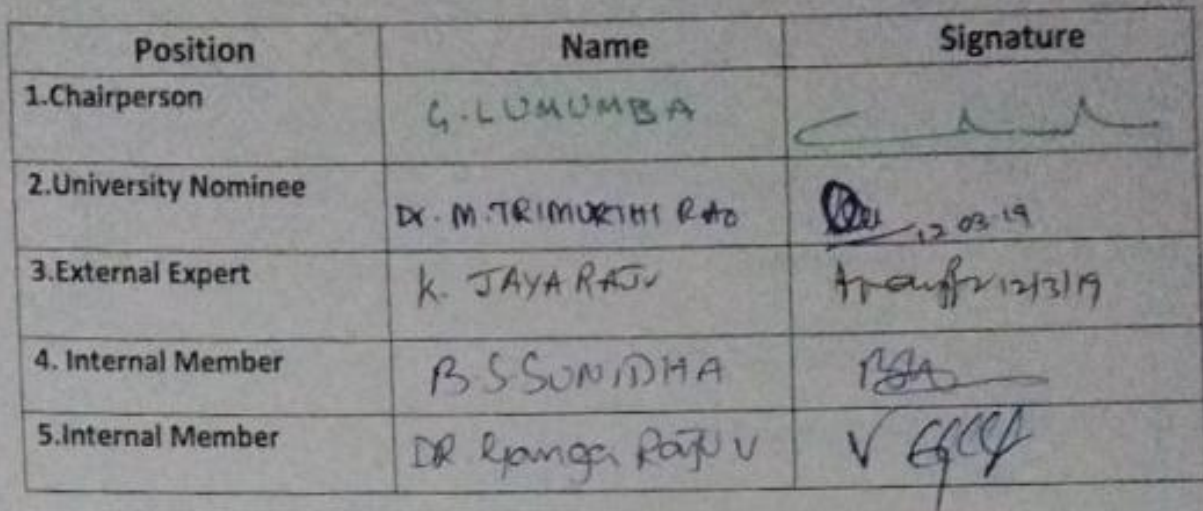 Position Name Signature
1.Chairperson G. LUMUMBA
2.University Nominee Dr. M. TRIMURTHI RAO 12 03 19
3.External Expert K. JAYA RAJU 12/3/19
4. Internal Member B S SUNIDHA
5.Internal Member DR Ganga Raju V